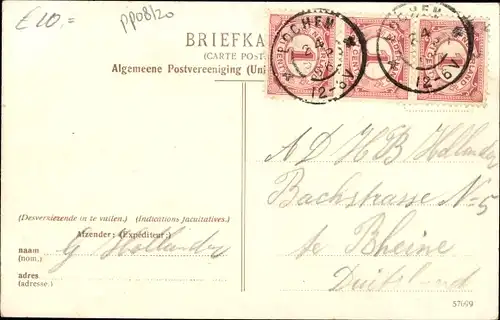 £10.=
pp08/20
BRIEFKA
(CARTE POS
Algemeene Postvereeniging (Uni
LOCHEM
12-6V
LOCHEM
12-6V
A D H B Hollander
Bachstrasse No 5
te Rheine
Duitsland
(Desverxierende in te vullen.) (Indications facultatives.)
Afzender: (Expéditeur:)
naam G Hollander
(nom.)
adres
(adresse.)
57099